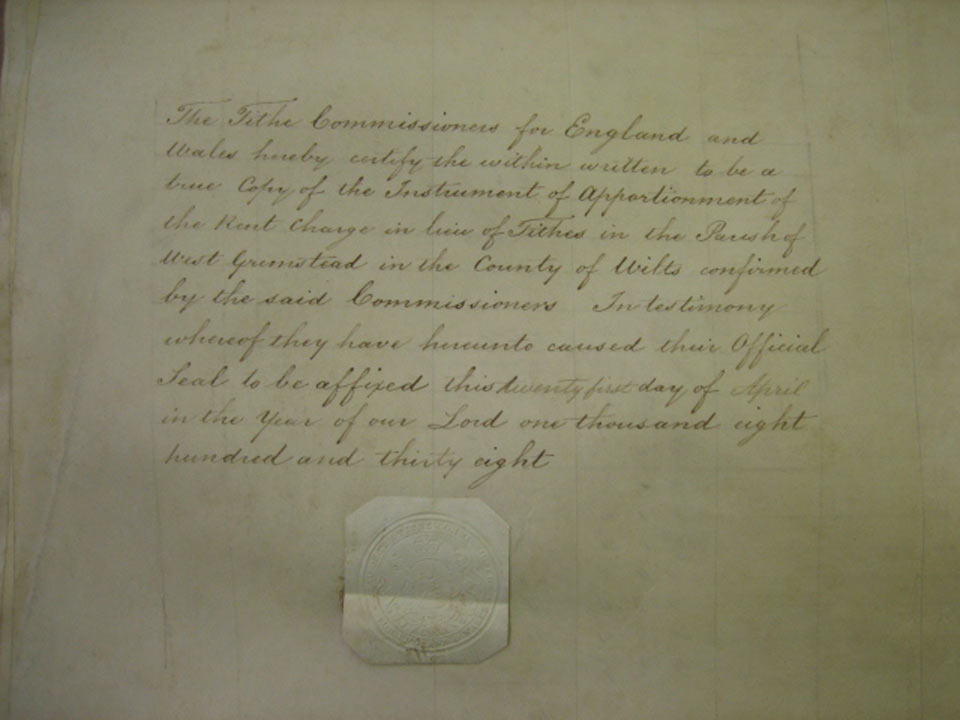 The Tithe Commissioners for England and
Wales hereby certify the within written to be a
true Copy of the Instrument of Apportionment of
the Rent Charge in lieu of Tithes in the Parish of
West Grimstead in the County of Wilts confirmed
by the said Commissioners In testimony
whereof they have hereunto caused their Official
Seal to be affixed this twenty first day of April
in the Year of our Lord one thousand eight
hundred and thirty eight